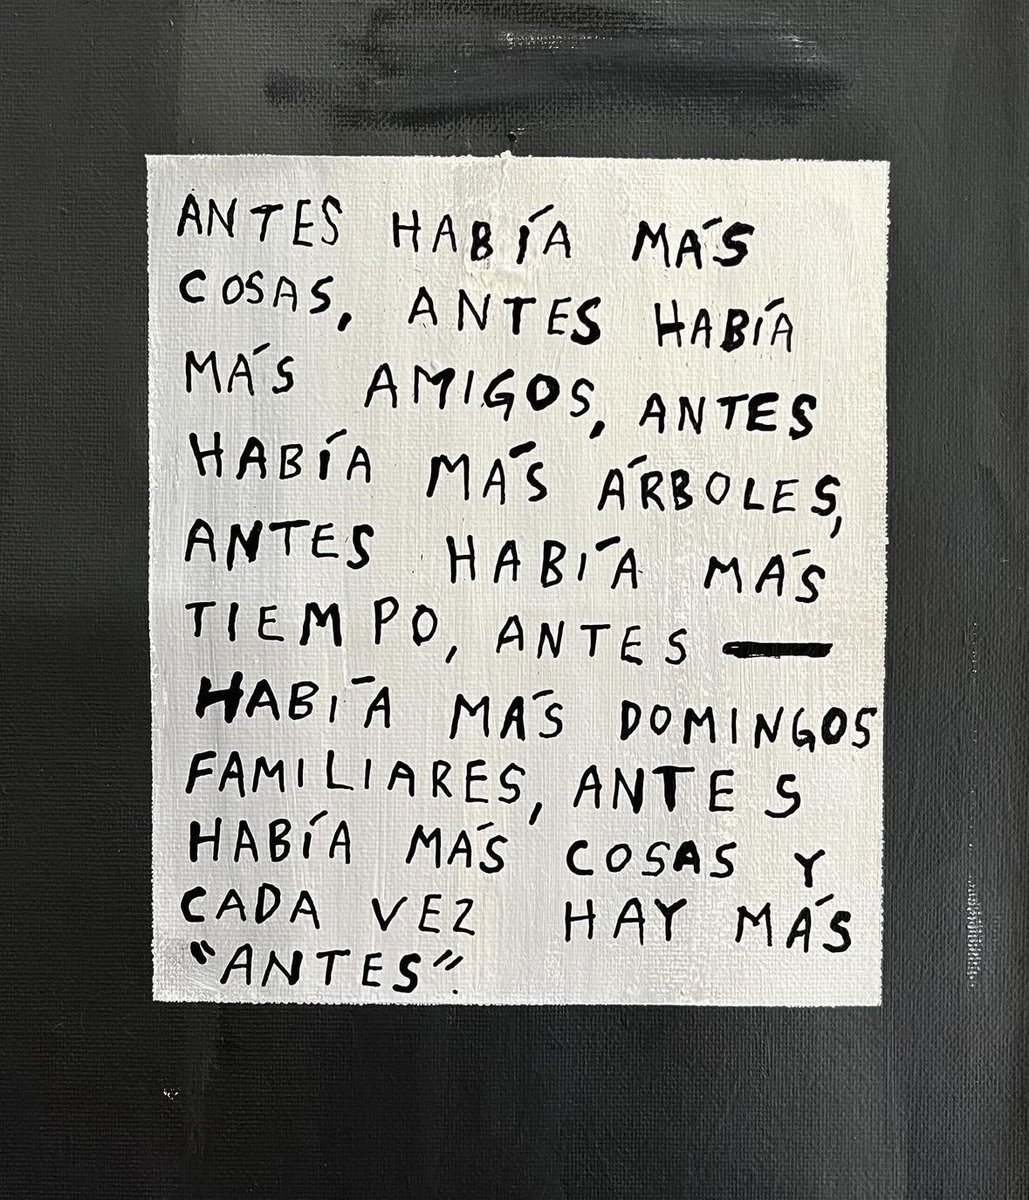 ANTES HABÍA MÁS
COSAS, ANTES HABÍA
MÁS AMIGOS, ANTES
HABÍA MÁS ÁRBOLES,
ANTES HABÍA MÁS
TIEMPO, ANTES
HABÍA MÁS DOMINGOS
FAMILIARES, ANTES
HABÍA MÁS COSAS Y
CADA VEZ HAY MÁS
"ANTES".